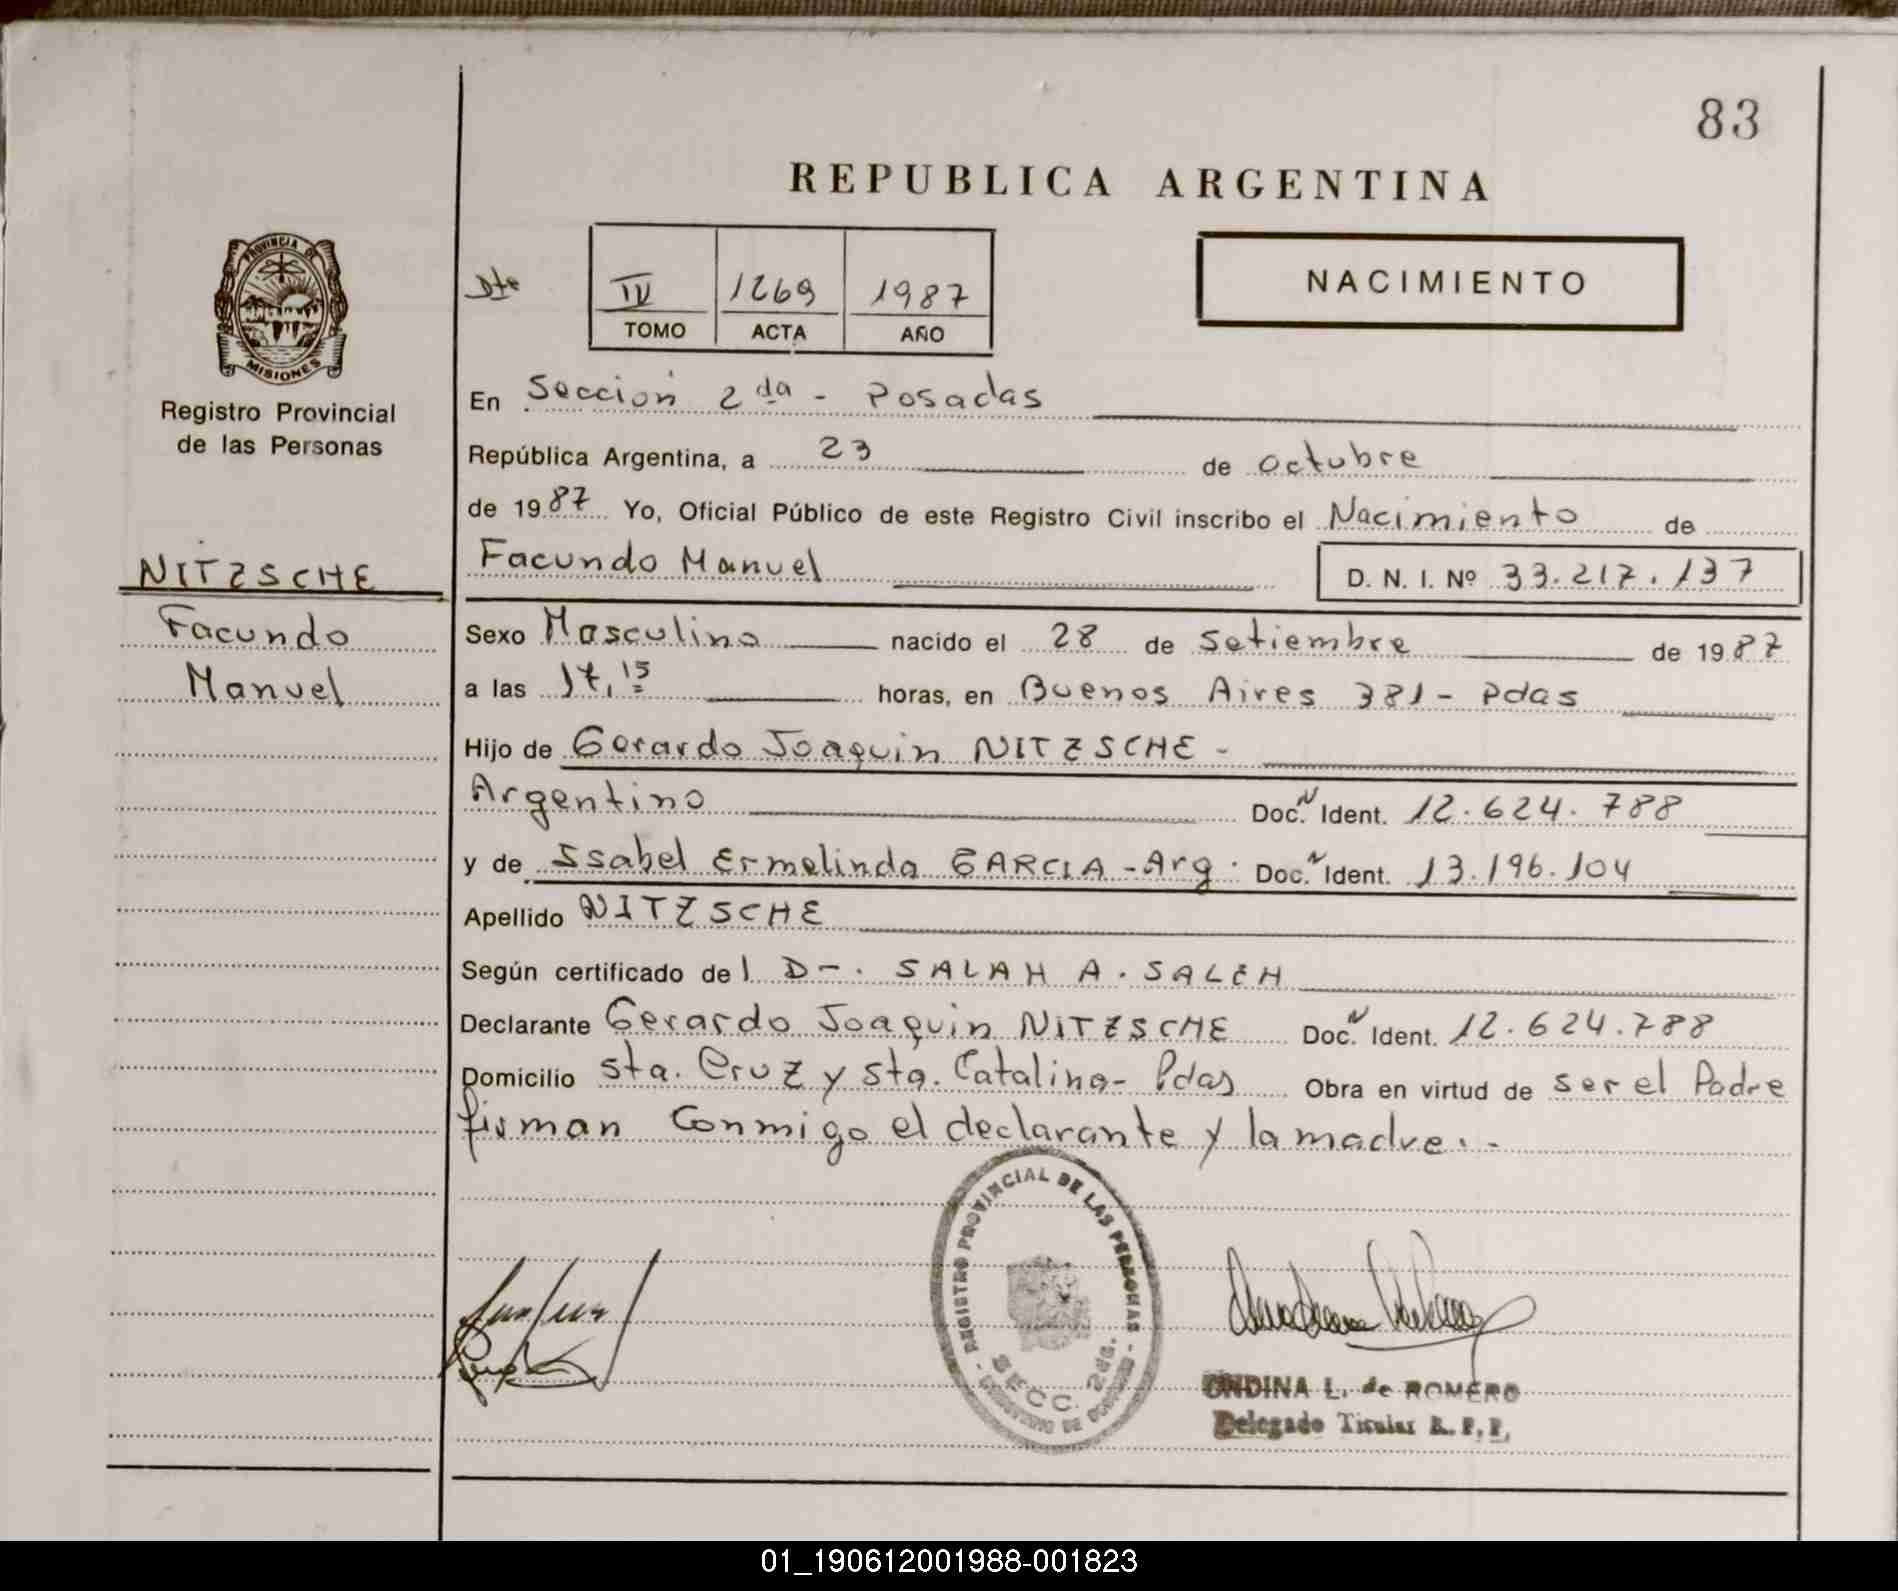 83
REPUBLICA ARGENTINA
PROVINCIA DE
MISIONES
Registro Provincial
de las Personas
Dto
IV 1269 1987
TOMO ACTA AÑO
NACIMIENTO
En Sección 2da - Posadas
República Argentina, a 23 de octubre
de 1987 Yo, Oficial Público de este Registro Civil inscribo el Nacimiento de
Facundo Manuel D. N. I. Nº 33.217.137
NITZSCHE
Facundo
Manuel
Sexo Masculino nacido el 28 de Setiembre de 1987
a las 17,15 horas, en Buenos Aires 381 - Pdas
Hijo de Gerardo Joaquin NITZSCHE -
Argentino Doc. N Ident. 12.624.788
y de Isabel Ermelinda GARCIA - Arg. Doc. N Ident. 13.196.104
Apellido NITZSCHE
Según certificado del D-. SALAH A. SALEH
Declarante Gerardo Joaquin NITZSCHE Doc. N Ident. 12.624.788
Domicilio Sta. Cruz y Sta. Catalina - Pdas Obra en virtud de ser el Padre
firman conmigo el declarante y la madre. -
- REGISTRO PROVINCIAL DE LAS PERSONAS -
SECC. 2da.
ONDINA L. de ROMERO
Delegado Titular R. P. P.
01_190612001988-001823